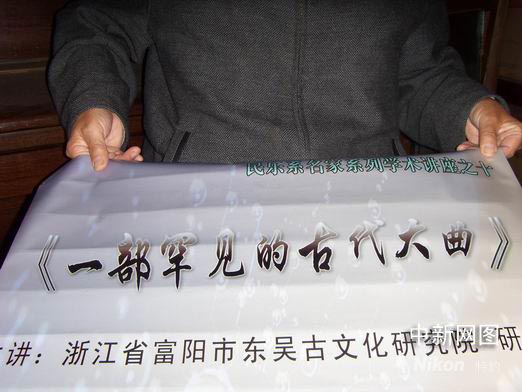 民乐系名家系列学术讲座之十
《一部罕见的古代大曲》
讲：浙江省富阳市东吴古文化研究院 研
中新网图
Nikon 特约